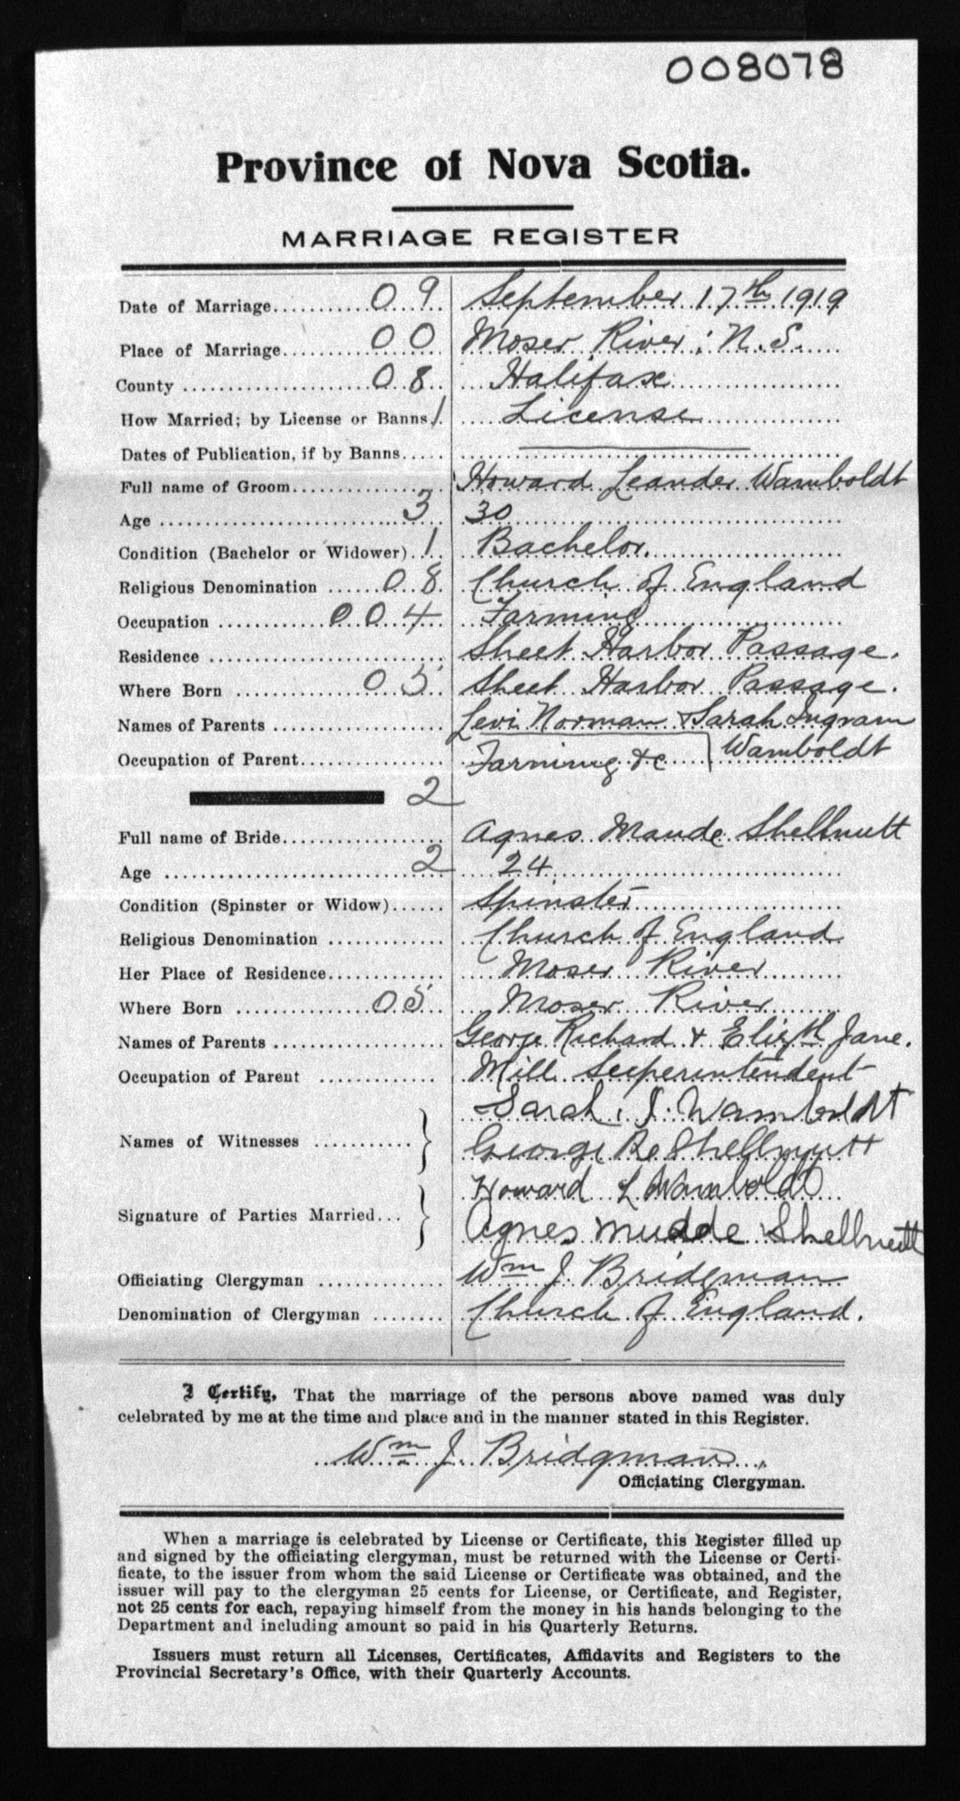 008078
Province of Nova Scotia.
MARRIAGE REGISTER
Date of Marriage........... 0 9 September 17th 1919
Place of Marriage........... 0 0 Moser River: N.S.
County ........... 0 8 Halifax
How Married; by License or Banns 1 License
Dates of Publication, if by Banns..... ———
Full name of Groom........... Howard Leander Wamboldt
Age ........... 3 30
Condition (Bachelor or Widower) 1 Bachelor.
Religious Denomination ...... 0 8 Church of England
Occupation ........... 0 0 4 Farming
Residence ........... Sheet Harbor Passage.
Where Born ........... 0 5 Sheet Harbor Passage.
Names of Parents ........... Levi Norman & Sarah Ingram
Occupation of Parent........... Farming &c Wamboldt
2
Full name of Bride........... Agnes Maude Shellnutt
Age ........... 2 24
Condition (Spinster or Widow)...... Spinster
Religious Denomination ........... Church of England
Her Place of Residence........... Moser River
Where Born ........... 05 Moser River
Names of Parents ........... George Richard & Elizth Jane.
Occupation of Parent ........... Mill Superintendent
Sarah. I. Wamboldt
Names of Witnesses ........... } George R. Shellnutt
Howard L Wamboldt
Signature of Parties Married... } Agnes Mudde Shellnutt
Officiating Clergyman ........... Wm J. Bridgman
Denomination of Clergyman ........ Church of England.
I Certify, That the marriage of the persons above named was duly
celebrated by me at the time and place and in the manner stated in this Register.
Wm J. Bridgman
Officiating Clergyman.
When a marriage is celebrated by License or Certificate, this Register filled up
and signed by the officiating clergyman, must be returned with the License or Certi-
ficate, to the issuer from whom the said License or Certificate was obtained, and the
issuer will pay to the clergyman 25 cents for License, or Certificate, and Register,
not 25 cents for each, repaying himself from the money in his hands belonging to the
Department and including amount so paid in his Quarterly Returns.
Issuers must return all Licenses, Certificates, Affidavits and Registers to the
Provincial Secretary's Office, with their Quarterly Accounts.